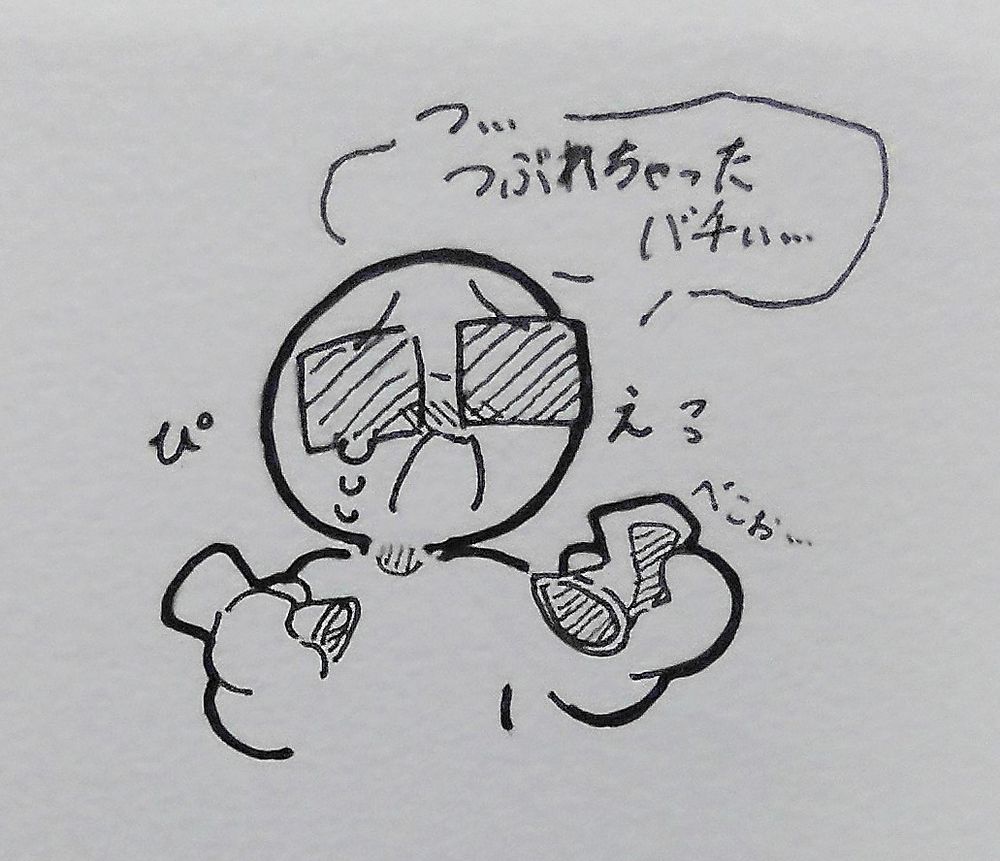 つ…
つぶれちゃった
バチぃ…
ぴ
えっ
べこぉ…